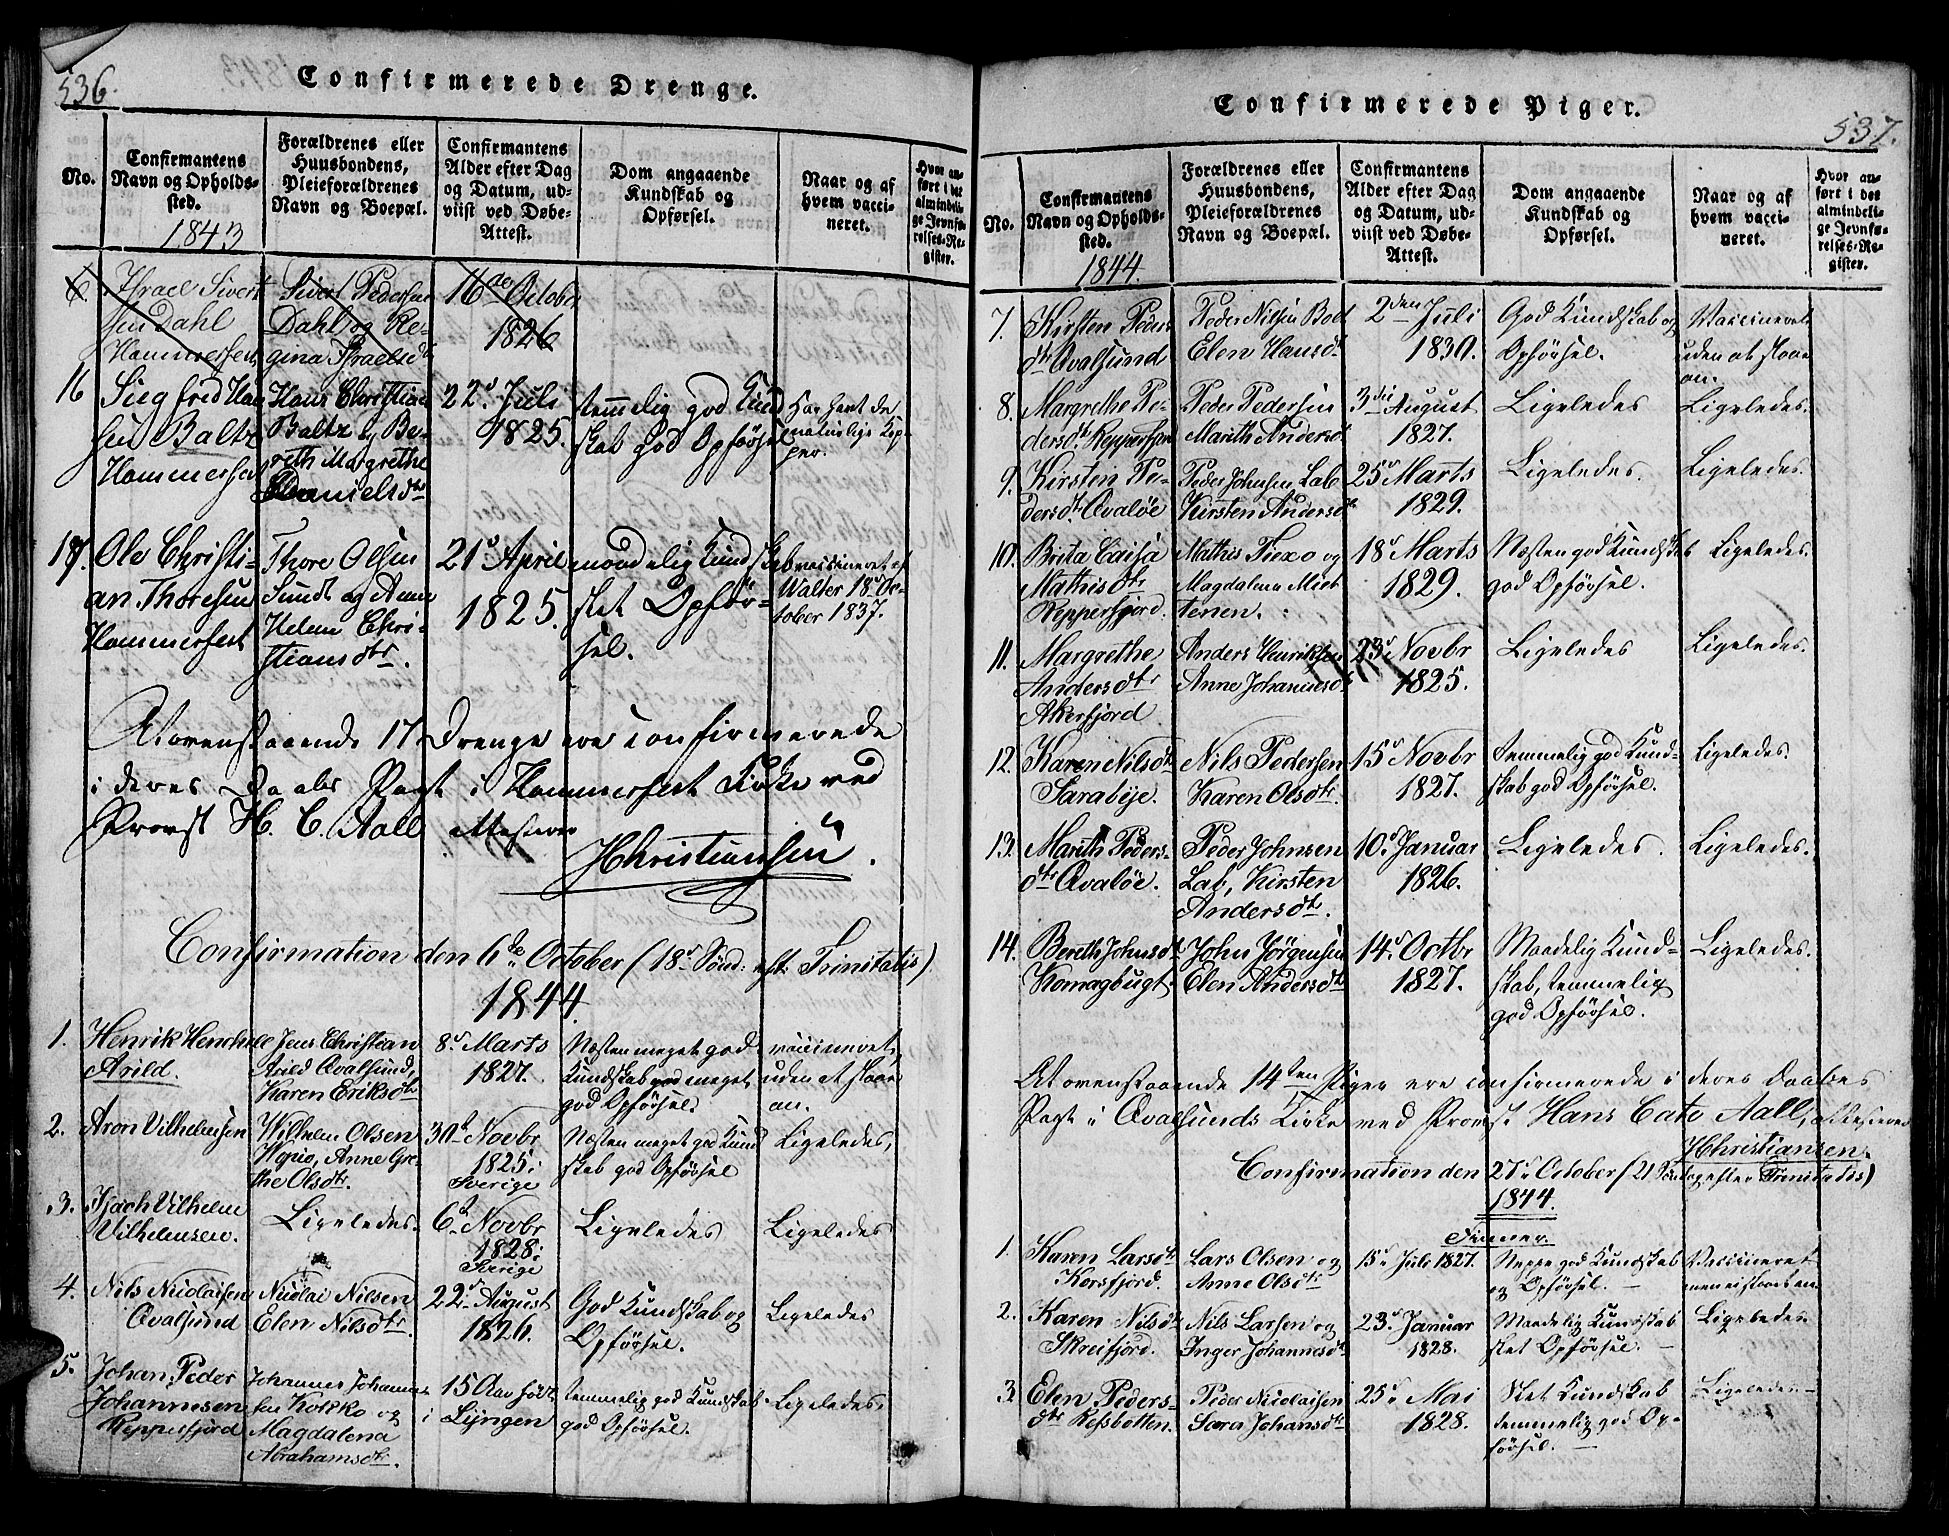 536.
Confirmerede Drenge.
No.
Confirmantens
Navn og Opholds-
sted.
1843
Forældrenes eller
Huusbondens,
Pleieforældrenes
Navn og Boepæl.
Confirmantens
Alder efter Dag
og Datum, ud-
viist ved Døbe-
Attest.
Dom angaaende
Kundskab og
Opførsel.
Naar og af
hvem vacci-
neret.
Hvor an-
ført i det
almindeli-
ge Jevnfø-
relses-Re-
gister.
6.
Israel Sivert
sen Dahl
Hammerfest
Sivert Pedersen
Dahl og Re-
gina Israelsd.
16de October
1826
16
Siegfred Han
sen Baltz
Hammerfest
Hans Christian
Baltz og Be-
reth Margrethe
Danielsdtr
22d Juli
1825.
temmelig god Kund
skab god Opførsel
Har havt de
naturlige Kop-
per.
17.
Ole Christi-
an Thoresen
Hammerfest
Thore Olsen
Sundt og Anne
Helene Chri-
stiansdtr.
21d April
1825.
maadelig Kundskab
slet Opfør-
sel.
vaccineret af
Walter 18d Oc-
tober 1837.
At ovenstaaende 17 Drenge ere confirmerede
i deres Daabs Pagt i Hammerfest Kirke ved
Provst H. C. Aall attesterer
HChristiansen.
Confirmation den 6te October (18d Sønd. eft. Trinitatis)
1844
1.
Henrik Henchel
Arild.
Jens Christian
Arild Qvalsund,
Karen Eriksdtr
8d Marts
1827.
Næsten meget god
Kundskab god meget
god Opførsel.
vaccineret,
uden at slaae
an.
2.
Aron Vilhelmsen
Wilhelm Olsen
Wopio, Anne Gre-
the Olsdtr.
30d Novbr
1825 i
Sverige
Næsten meget god Kund
skab god Opførsel
Ligeledes,
3.
Isach Vilhelm
Vilhelmsen.
Ligeledes.
6d Novbr
1828 i
Sverige
Ligeledes
Ligeledes
4.
Nils Nicolaisen
Qvalsund
Nicolai Nilsen
Elen Nilsdtr.
22d August
1826.
God Kundskab og
Opførsel.
Ligeledes
5.
Johan Peder
Johannesen
Repperfjord
Johannes Johannes
sen Kokko og
Magdalena
Abrahamsdtr.
15 Aar født
i Lyngen
temmelig god Kundskab
god Opførsel.
Ligeledes.
537.
Confirmerede Piger.
No.
Confirmantens
Navn og Opholds-
sted.
1844.
Forældrenes eller
Huusbondens,
Pleieforældrenes
Navn og Boepæl.
Confirmantens
Alder efter Dag
og Datum, ud-
viist ved Døbe-
Attest.
Dom angaaende
Kundskab og
Opførsel.
Naar og af
hvem vacci-
neret.
Hvor an-
ført i det
almindeli-
ge Jevnfø-
relses-Re-
gister.
7.
Kirsten Peders
dtr Qvalsund
Peder Nilsen Bod
Elen Hansdtr
2den Juli
1830.
God Kundskab og
Opførsel.
Vaccineret
uden at slaae
an.
8.
Margrethe Pe-
dersdtr Repperfjord
Peder Pedersen
Marith Andersdtr
3die August
1827.
Ligeledes
Ligeledes.
9.
Kirsten Pe-
dersdtr. Qvaløe
Peder Johnsen Lab
Kirsten Andersdtr
25d Marts
1829.
Ligeledes.
Ligeledes.
10.
Brita Caisa
Mathisdtr
Repperfjord.
Mathis Fiexo og
Magdalena Mort
tenen.
18d Marts
1829.
Næsten god Kundskab
god Opførsel.
Ligeledes.
11.
Margrethe
Andersdtr
Akerfjord
Anders Henriksen
Anne Johannesdtr
23d Novbr
1825.
Ligeledes
Ligeledes.
12.
Karen Nilsdtr
Sarabye.
Nils Pedersen
Karen Olsdtr.
15d Novbr
1827.
temmelig god Kund-
skab god Opførsel.
Ligeledes.
13.
Marith Peders-
dtr Qvaløe.
Peder Johnsen
Lab, Kirsten
Andersdtr.
10d Januar
1826.
Ligeledes.
Ligeledes.
14.
Bereth Johnsdtr
Komagbugt.
John Jörgensen
Elen Andersdtr
14d Octbr
1827.
Maadelig Kund-
skab, temmelig
god Opførsel.
Ligeledes.
At ovenstaaende 14ten Piger ere confirmerede i deres Daabes
Pagt i Qvalsunds Kirke ved Provst Hans Cato Aall, attesterer
HChristiansen.
Confirmation den 27d October (21 Søndag efter Trinitatis)
1844.
Finner.
1.
Karen Larsdtr
Korsfjord.
Lars Olsen og
Anne Olsdtr
15d Juli 1827.
Neppe god Kundskab
og Opførsel. —
Vaccineret
men ei slaaet an
2.
Karen Nilsdtr
Skreifjord.
Nils Larsen og
Inger Johannesdtr
23d Januar
1828.
Maadelig Kundskab
slet Opførsel. —
Ligeledes
3.
Elen Peders-
dtr Refsbotten.
Peder Nicolaisen
Sara Johansdtr
25d Mai
1828.
Slet Kundskab
temmelig god Op-
førsel. —
Ligeledes —